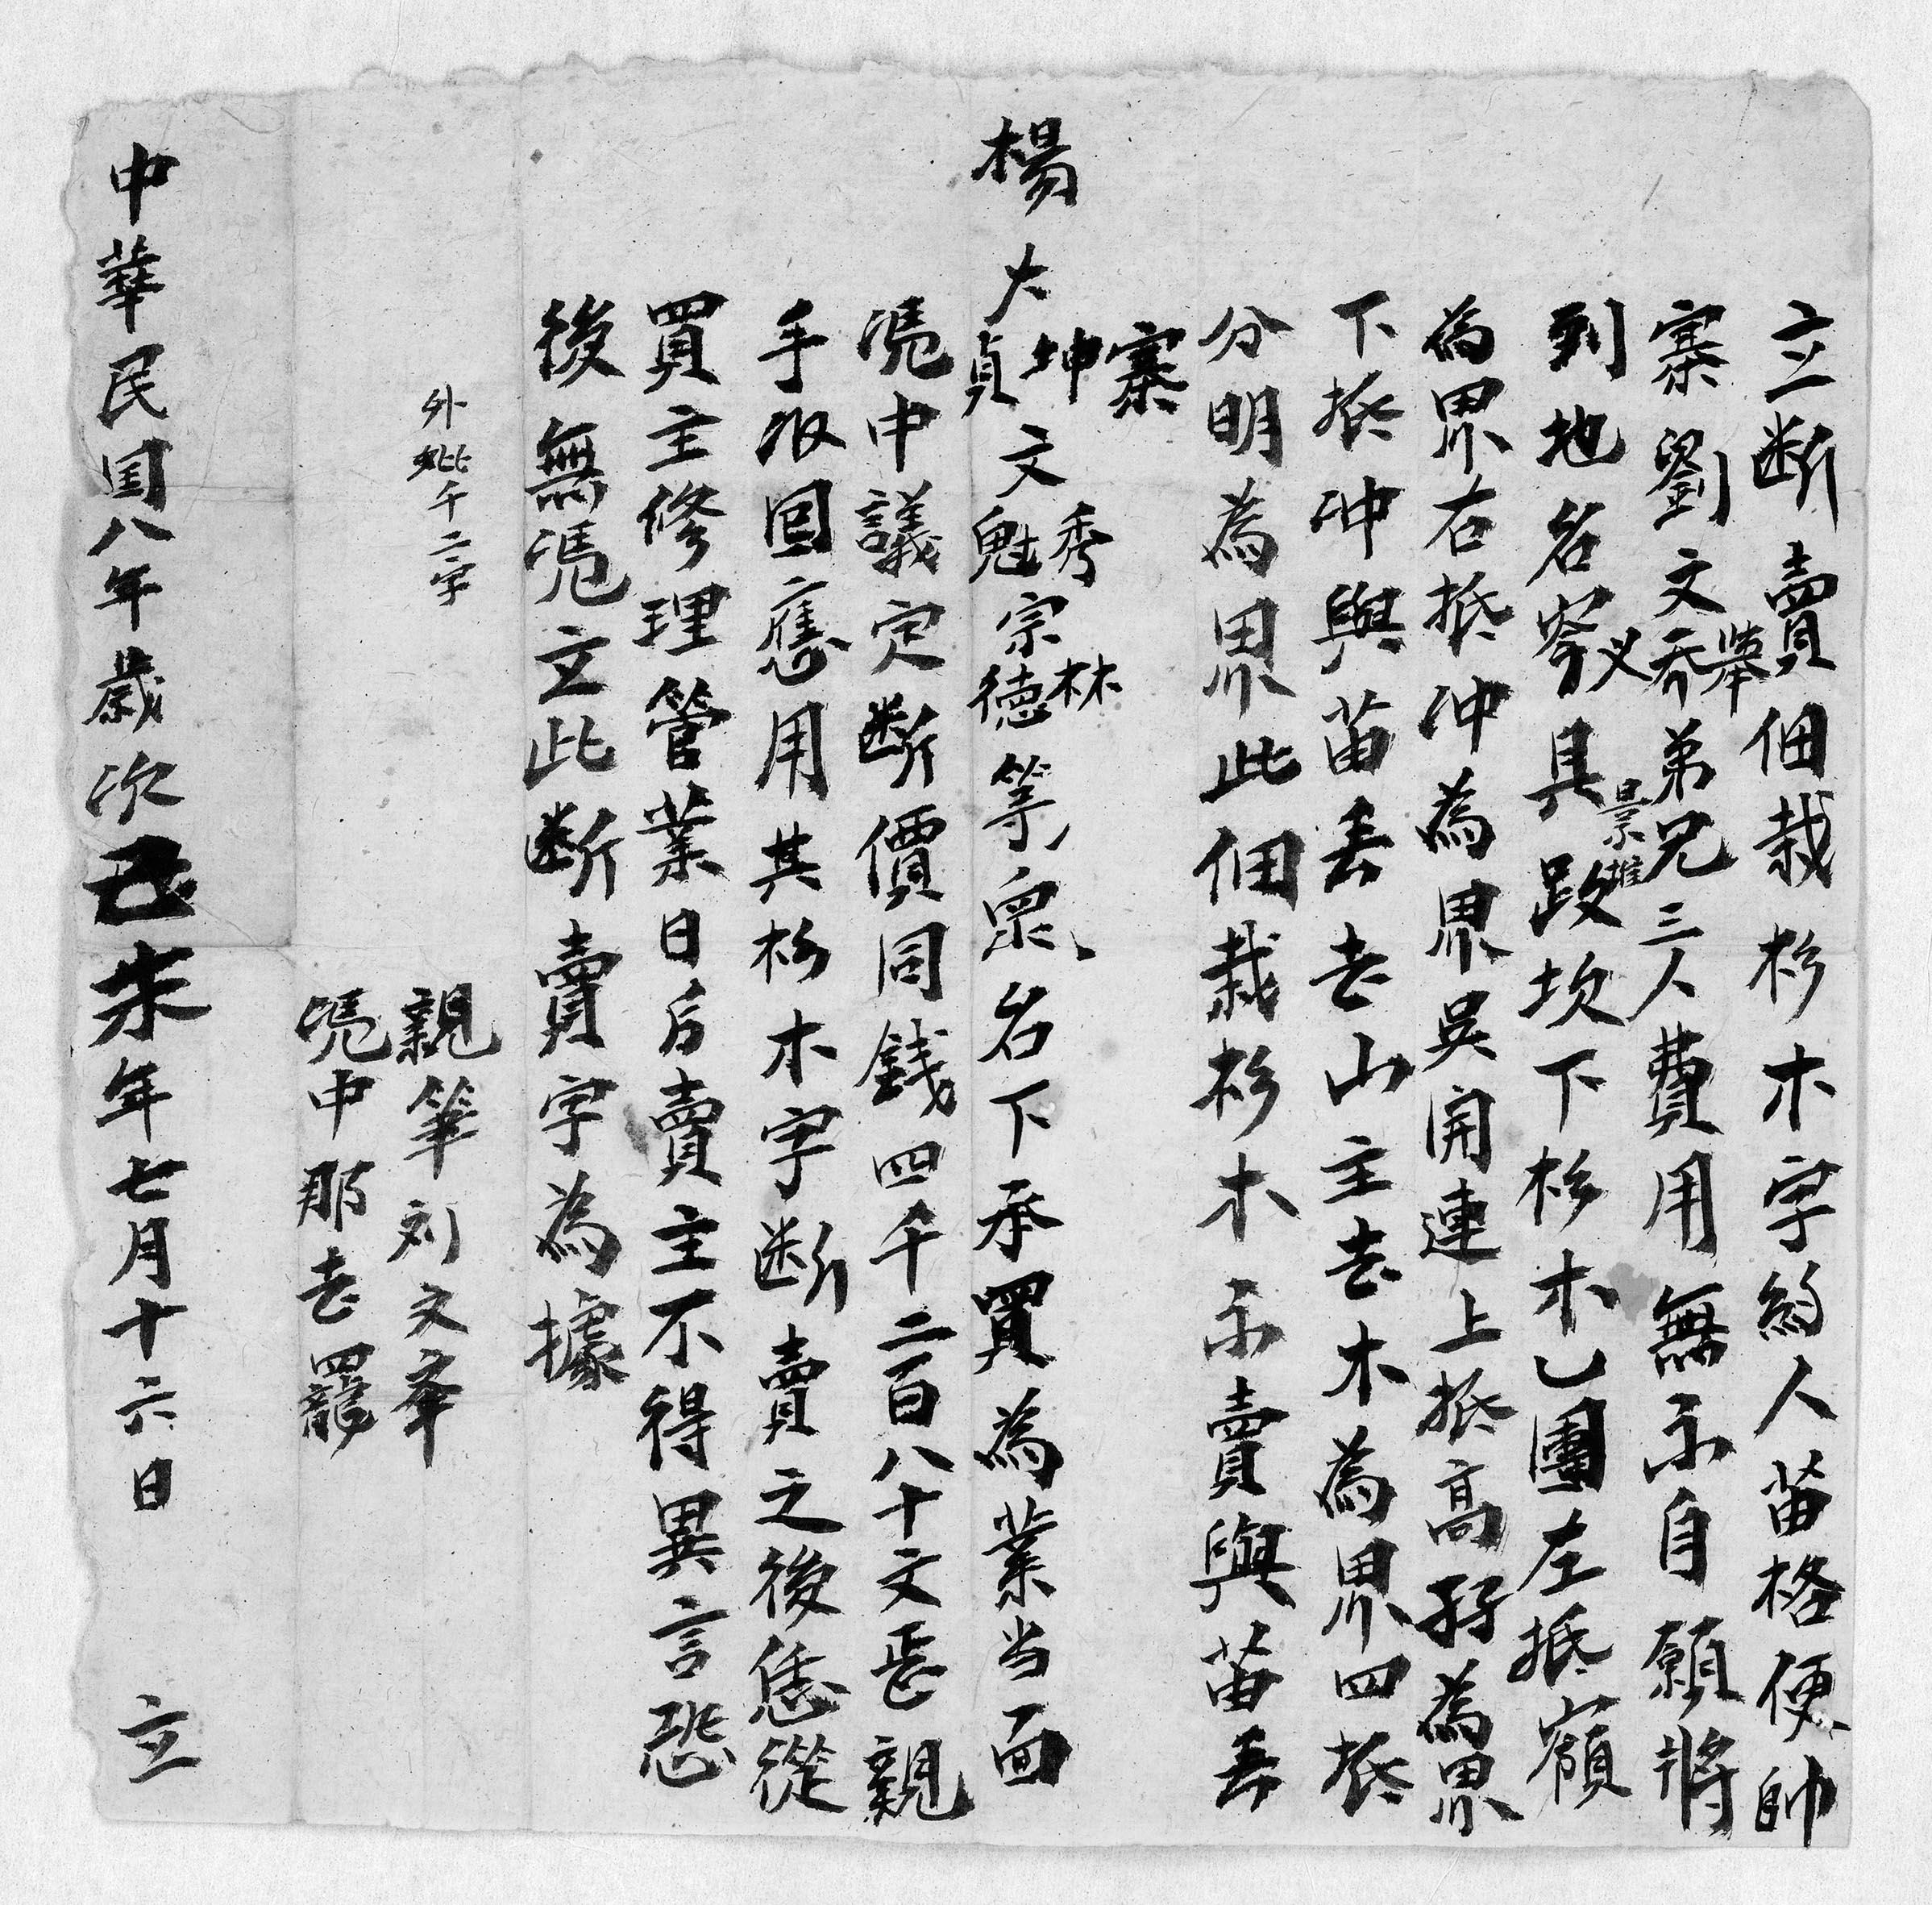 立断賣佃栽杉木字約人苗格便帥
寨劉文舉喬弟兄三人費用無示自願將
景堆
到地名嶺义具段坎下杉木乙團左抵嶺
為界右抵冲為界吳開連上抵高孖為界
下抵冲與苗丢去山主去木為界四抵
分明為界此佃栽杉木示賣與苗丢
寨
楊大坤貞文秀魁宗林德等眾名下承買為業当面
憑中議定断價同錢四千二百八十文㱏親
手收囬應用其杉木字断賣之後恁從
買主修理管業日后賣主不得異言恐
後無憑立此断賣字為據
外㘩千二字
親筆刘文舉
憑中那去羅
中華民国八年歲次己未年七月十六日 立